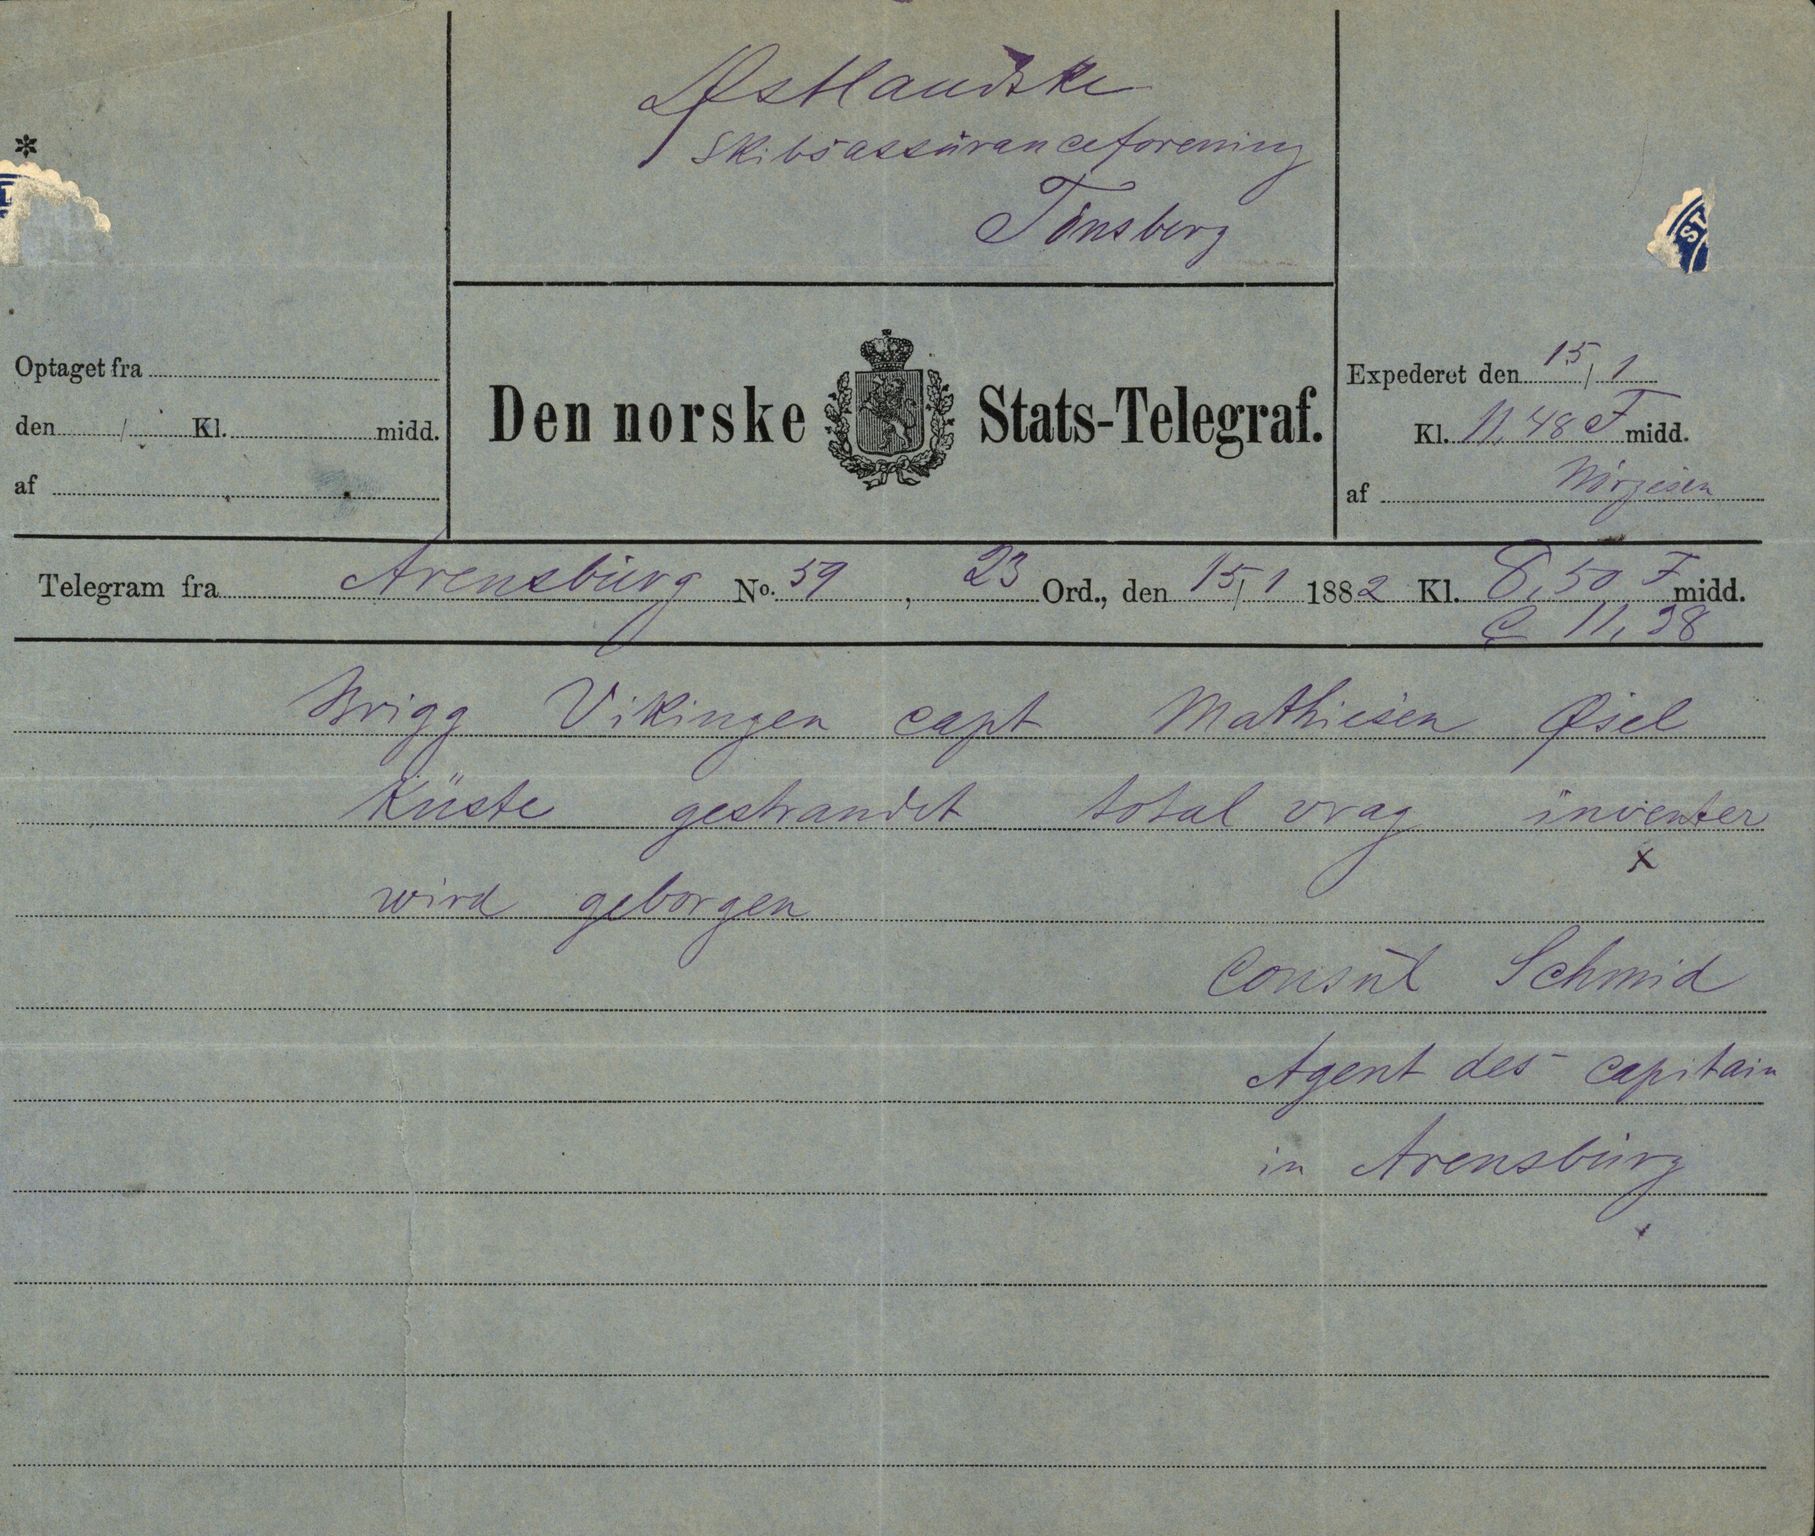 Østlandske
Skibsassüranceforening
Tönsberg
*
ST
Optaget fra
den / Kl. midd.
af
Den norske Stats-Telegraf.
Expederet den 15/1
Kl. 11,48 F midd.
af
Telegram fra Arensbürg No. 59, 23 Ord., den 15/1 1882 Kl. 8,50 F midd.
11,38
Brigg Vikingen capt Mathiesen Øsel
Küste gestrandet total vrag inventer
x
wird geborgen
Consül Schmid
Agent des capitain
in Arensbürg